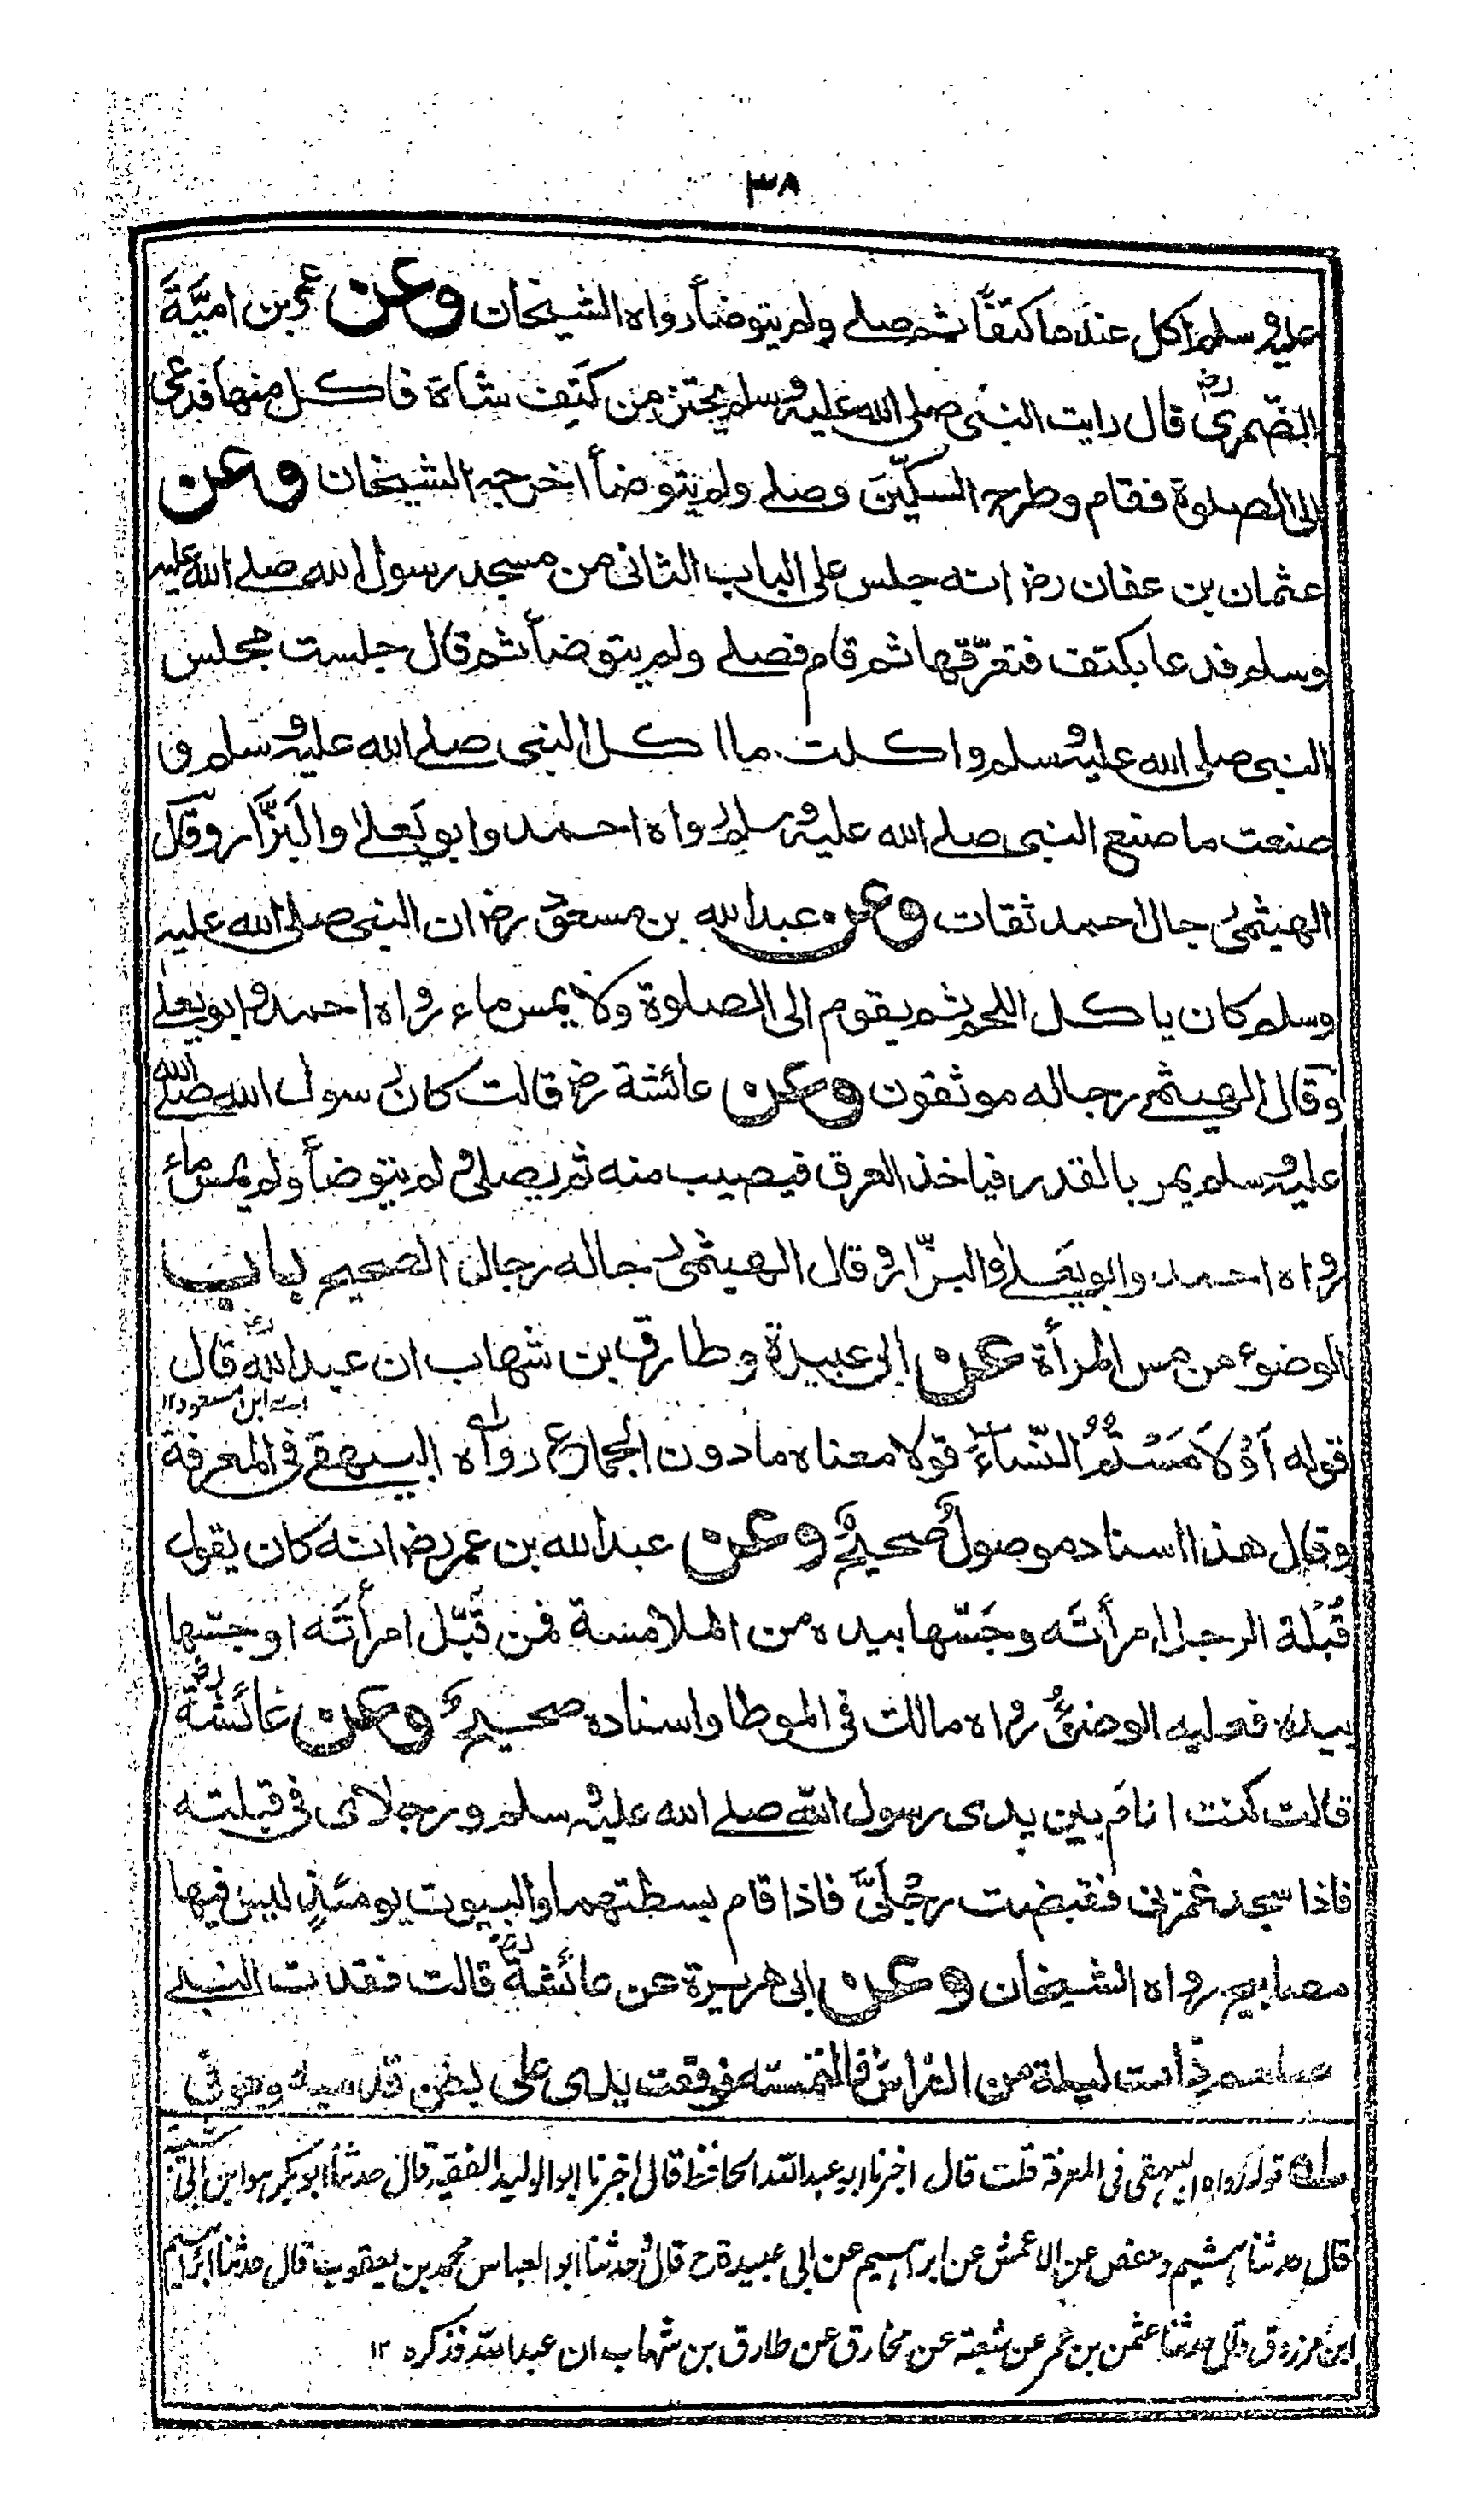 ٣٨
عليه وسلم اكل عندها كتفًا ثم صلى ولم يتوضأ رواه الشيخان وعن عمرو بن اميَّةَ
الضّمرىّ رض قال رايت النبى صلى الله عليه وسلم يحتز من كَتِف شاة فاكل منها فدعى
الى الصلوة فقام وطرح السكّينَ وصلے ولم يتوضأ اخرجه الشيخان وعن
عثمان بن عفان رض انه جلس على الباب الثانى من مسجد رسول الله صلے الله عليه
وسلم فدعا بكتف فتعرّقها ثم قام فصلے ولم يتوضأ ثم قال جلست مجلس
النبى صلى الله عليه وسلم واكلت ما اكل النبى صلے الله عليه وسلم و
صنعت ما صنع النبى صلے الله عليه وسلم رواه احمد وابو يَعلےٰ والبَزَّار وقال
الهيثمىُ رجال احمد ثقات وعن عبد الله بن مسعود رض ان النبى صلى الله عليه
وسلم كان ياكل اللحم ثم يقوم الى الصلوة ولا يمس ماء رواه احمد وابو يعلے
وقال الهيثمے رجاله موثقون وعن عائشة رض قالت كان رسول الله صلے الله
عليه وسلم يمر بالقدر فياخذ العرق فيصيب منه ثم يصلى ولم يتوضأ ولم يمس ماء
رواه احمد وابو يَعلے والبزّار وقال الهيثمىُ رجاله رجال الصحيح باب
الوضوء من مس المرأة عن ابى عبيدة وطارق بن شهاب ان عبد الله رض قال
اے ابن مسعود ١٢
قوله اَوْ لاَمَسْتُمُ النِّسَاءَ قولا معناه مادون الجماع رواه البيهقے فى المعرفة
وقال هذا اسناد موصولٌ صحيحٌ وعن عبد الله بن عمر رض انه كان يقول
قُبْلة الرجل امرأتَه وجَسّها بيده من الملامسة فمن قَبّل امرأتَه او جسّها
بيده فعليه الوضوءُ رواه مالك فى الموطا واسناده صحيحٌ وعن عائَشة رض
قالت كنت انام بين يدى رسول الله صلے الله عليه وسلم ورجلاى فى قبلته
فاذا سجد غمزنى فقبضت رِجْلَىَّ فاذا قام بسطتهما والبيوت يومئذٍ ليس فيها
مصابيح رواه الشيخان وعن ابى هريرة عن عائشة رض قالت فقدت النبے
صلعم ذات ليلة من الفراش فالتمسته فوقعت يدى على بطن قدميه وهو فى
له قوله رواه البيهقى فى المعرفة قلت قال اخبرنا ابو عبد الله الحافظ قال اخبرنا ابو الوليد الفقيه قال حدثنا ابو بكر هو ابن ابى شيبة
قال حدثنا هشيم وحفص عن الاعمش عن ابراهيم عن ابى عبيدة ح قال وحدثنا ابو العباس محمد بن يعقوب قال حدثنا ابراهيم
ابن مرزوق قال حدثنا عثمن بن عمر عن شعبة عن مخارق عن طارق بن شهاب ان عبد الله فذكره ١٢